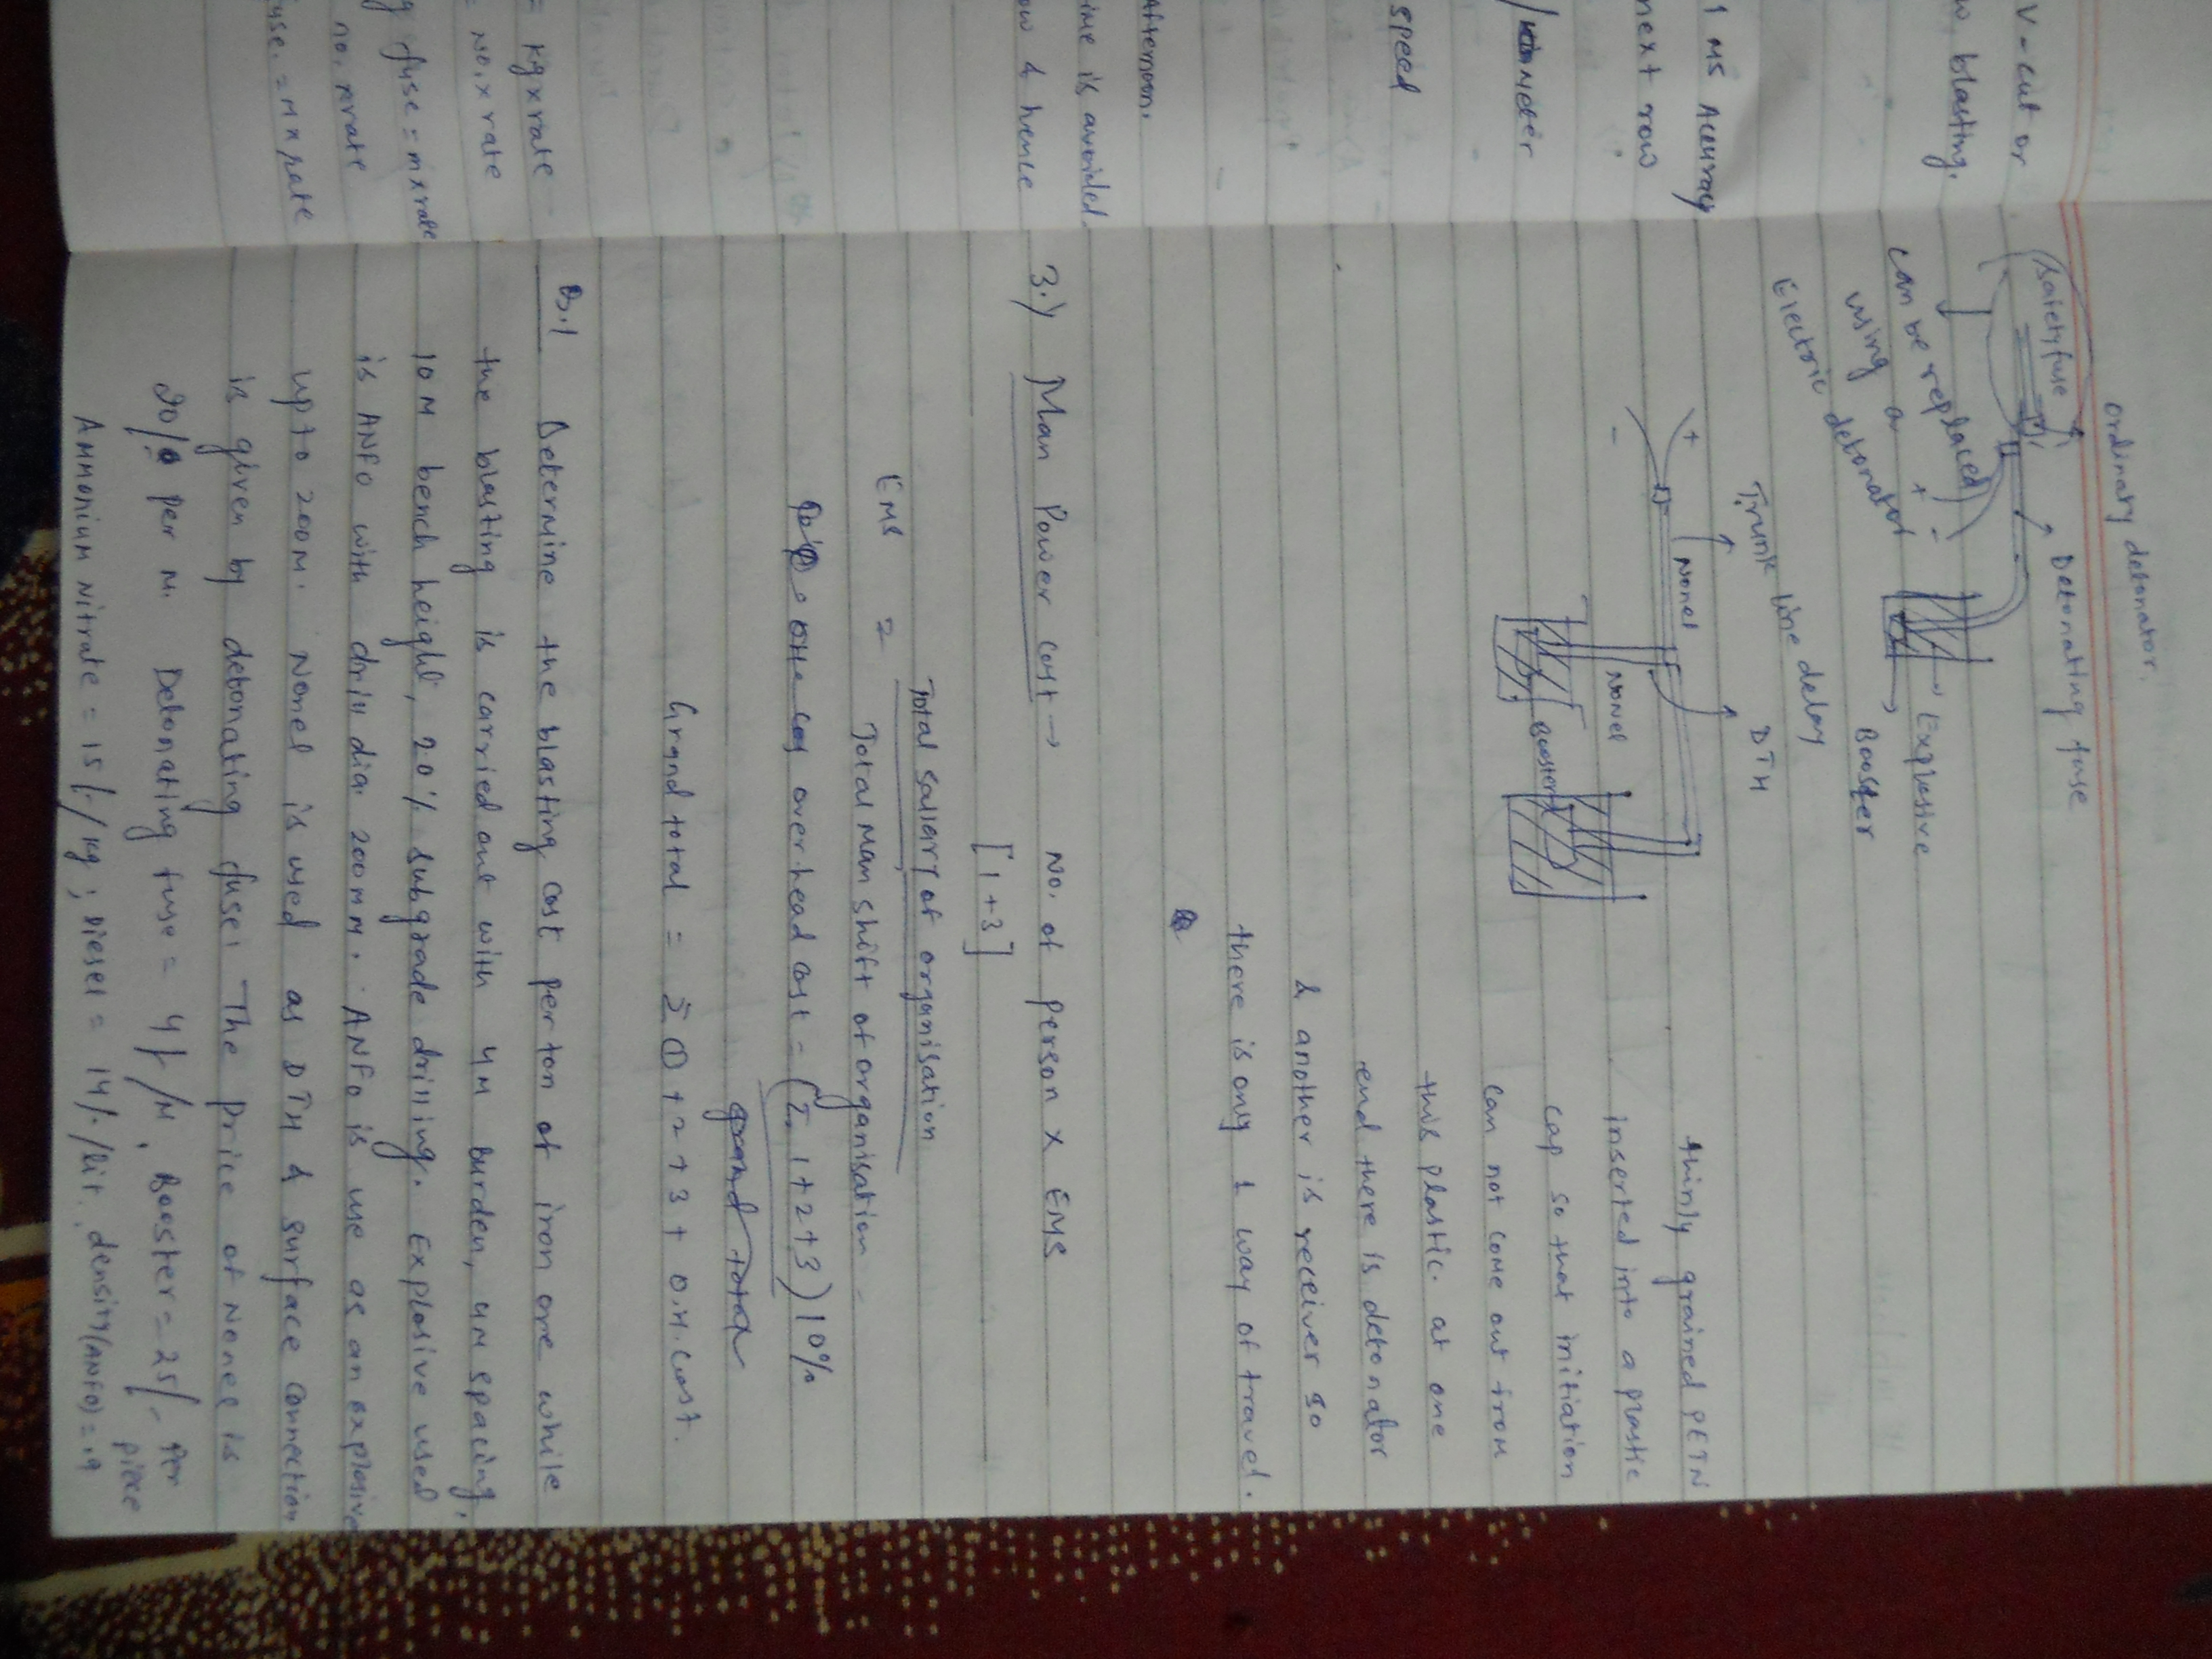 V-cut or
w blasting.
1 MS Accuracy
next row
meter
speed
Afternoon.
ime is avoided
ow & hence
= kg x rate
= No. x rate
g fuse = m x rate
no. x rate
fuse = m x rate
Ordinary detonator.
Safety fuse
Detonating fuse
can be replaced
using a + -
Electric detonator
Explosive
Booster
Trunk line delay
DTH
+
-
Nonel
Nonel
Booster
thinly grained PETN
inserted into a plastic
cap so that initiation
can not come out from
this plastic. at one
end there is detonator
& another is receiver so
there is only 1 way of travel.
3.) Man Power cost → No. of person x EMS
[1+3]
EMS = Total salary of organisation
Total man shift of organisation
over head cost = (Σ 1+2+3) 10%
grand total
Grand total = Σ ① + 2 + 3 + O.H. cost.
Q.1 Determine the blasting cost per ton of iron ore while
the blasting is carried out with 4M burden, 4M spacing,
10 M bench height, 20% subgrade drilling. Explosive used
is ANFO with drill dia. 200mm. ANFO is use as an explosive
upto 200m. Nonel is used as DTH & surface connection
is given by detonating fuse. The price of Nonel is
per m. Detonating fuse = 4/- /M, Booster = 25/- per piece
Ammonium Nitrate = 15/- /kg ; Diesel = 14/- /lit. density(ANFO) = .9